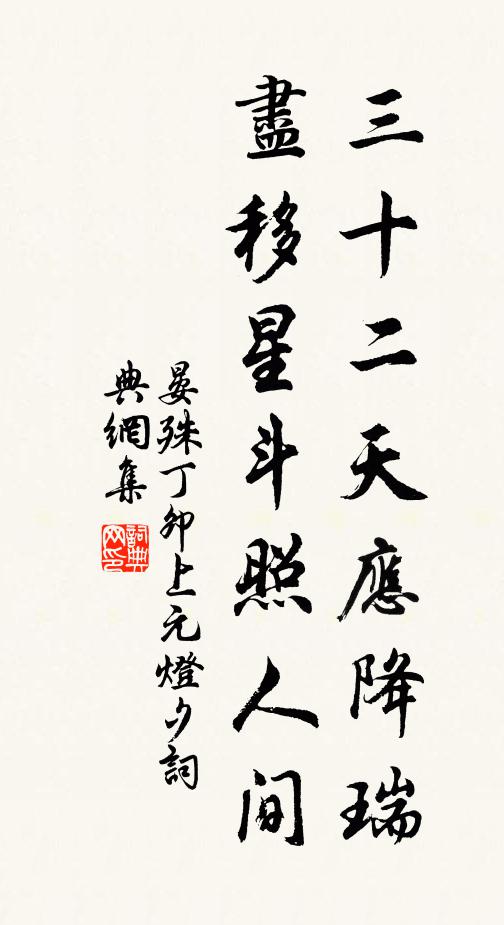 三十二天應降瑞
盡移星斗照人间
晏殊丁卯上元燈夕詞
典網集
詞典网印